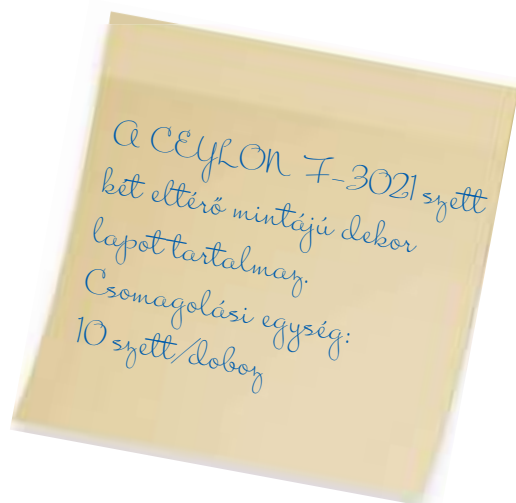 A CEYLON F-3021 szett
két eltérő mintájú dekor
lapot tartalmaz.
Csomagolási egység:
10 szett/doboz